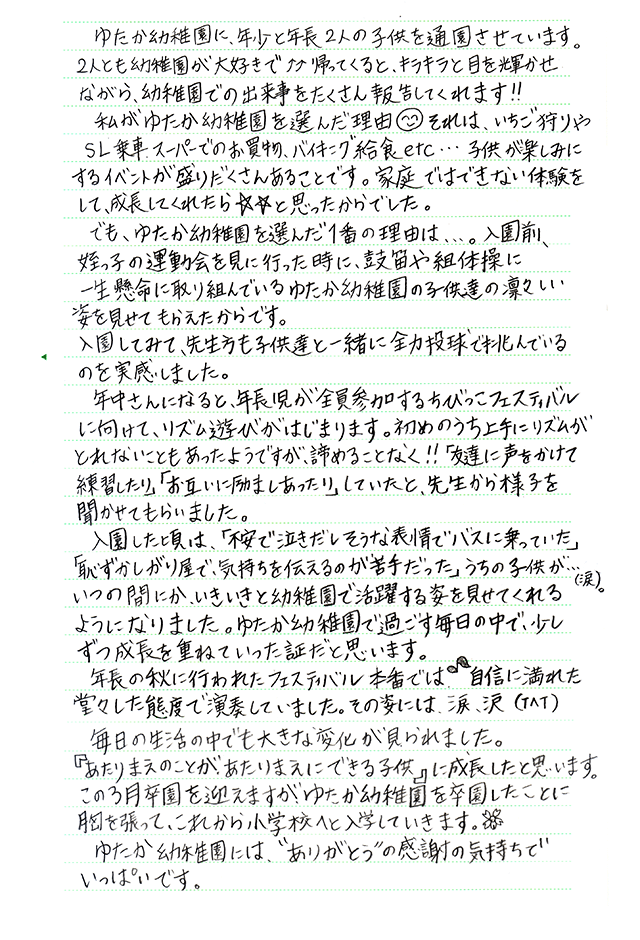 ゆたか幼稚園に、年少と年長2人の子供を通園させています。
2人とも幼稚園が大好きで♪♪帰ってくると、キラキラと目を輝かせ
ながら、幼稚園での出来事をたくさん報告してくれます!!
私がゆたか幼稚園を選んだ理由☺それは、いちご狩りや
SL乗車、スーパーでのお買物、バイキング給食etc…子供が楽しみに
するイベントが盛りだくさんあることです。家庭ではできない体験を
して、成長してくれたら☆☆と思ったからでした。
でも、ゆたか幼稚園を選んだ1番の理由は…。入園前、
姪っ子の運動会を見に行った時に、鼓笛や組体操に
一生懸命に取り組んでいるゆたか幼稚園の子供達の凛々しい
姿を見せてもらえたからです。
入園してみて、先生方も子供達と一緒に全力投球で挑んでいる
のを実感しました。
年中さんになると、年長児が全員参加するちびっこフェスティバル
に向けて、リズム遊びがはじまります。初めのうち上手にリズムが
とれないこともあったようですが、諦めることなく!!「友達に声をかけて
練習したり」「お互いに励ましあったり」していたと、先生から様子を
聞かせてもらいました。
入園した頃は、「不安で泣きだしそうな表情でバスに乗っていた」
「恥ずかしがり屋で、気持ちを伝えるのが苦手だった」うちの子供が…
いつの間にか、いきいきと幼稚園で活躍する姿を見せてくれる(涙)。
ようになりました。ゆたか幼稚園で過ごす毎日の中で、少し
ずつ成長を重ねていった証だと思います。
年長の秋に行われたフェスティバル本番では、♪自信に満れた
堂々した態度で演奏していました。その姿には、涙、涙(T^T)
毎日の生活の中でも大きな変化が見られました。
『あたりまえのことが、あたりまえにできる子供』に成長したと思います。
この3月卒園を迎えますが、ゆたか幼稚園を卒園したことに
胸を張って、これから小学校へと入学していきます。🌸
ゆたか幼稚園には、"ありがとう"の感謝の気持ちで
いっぱいです。